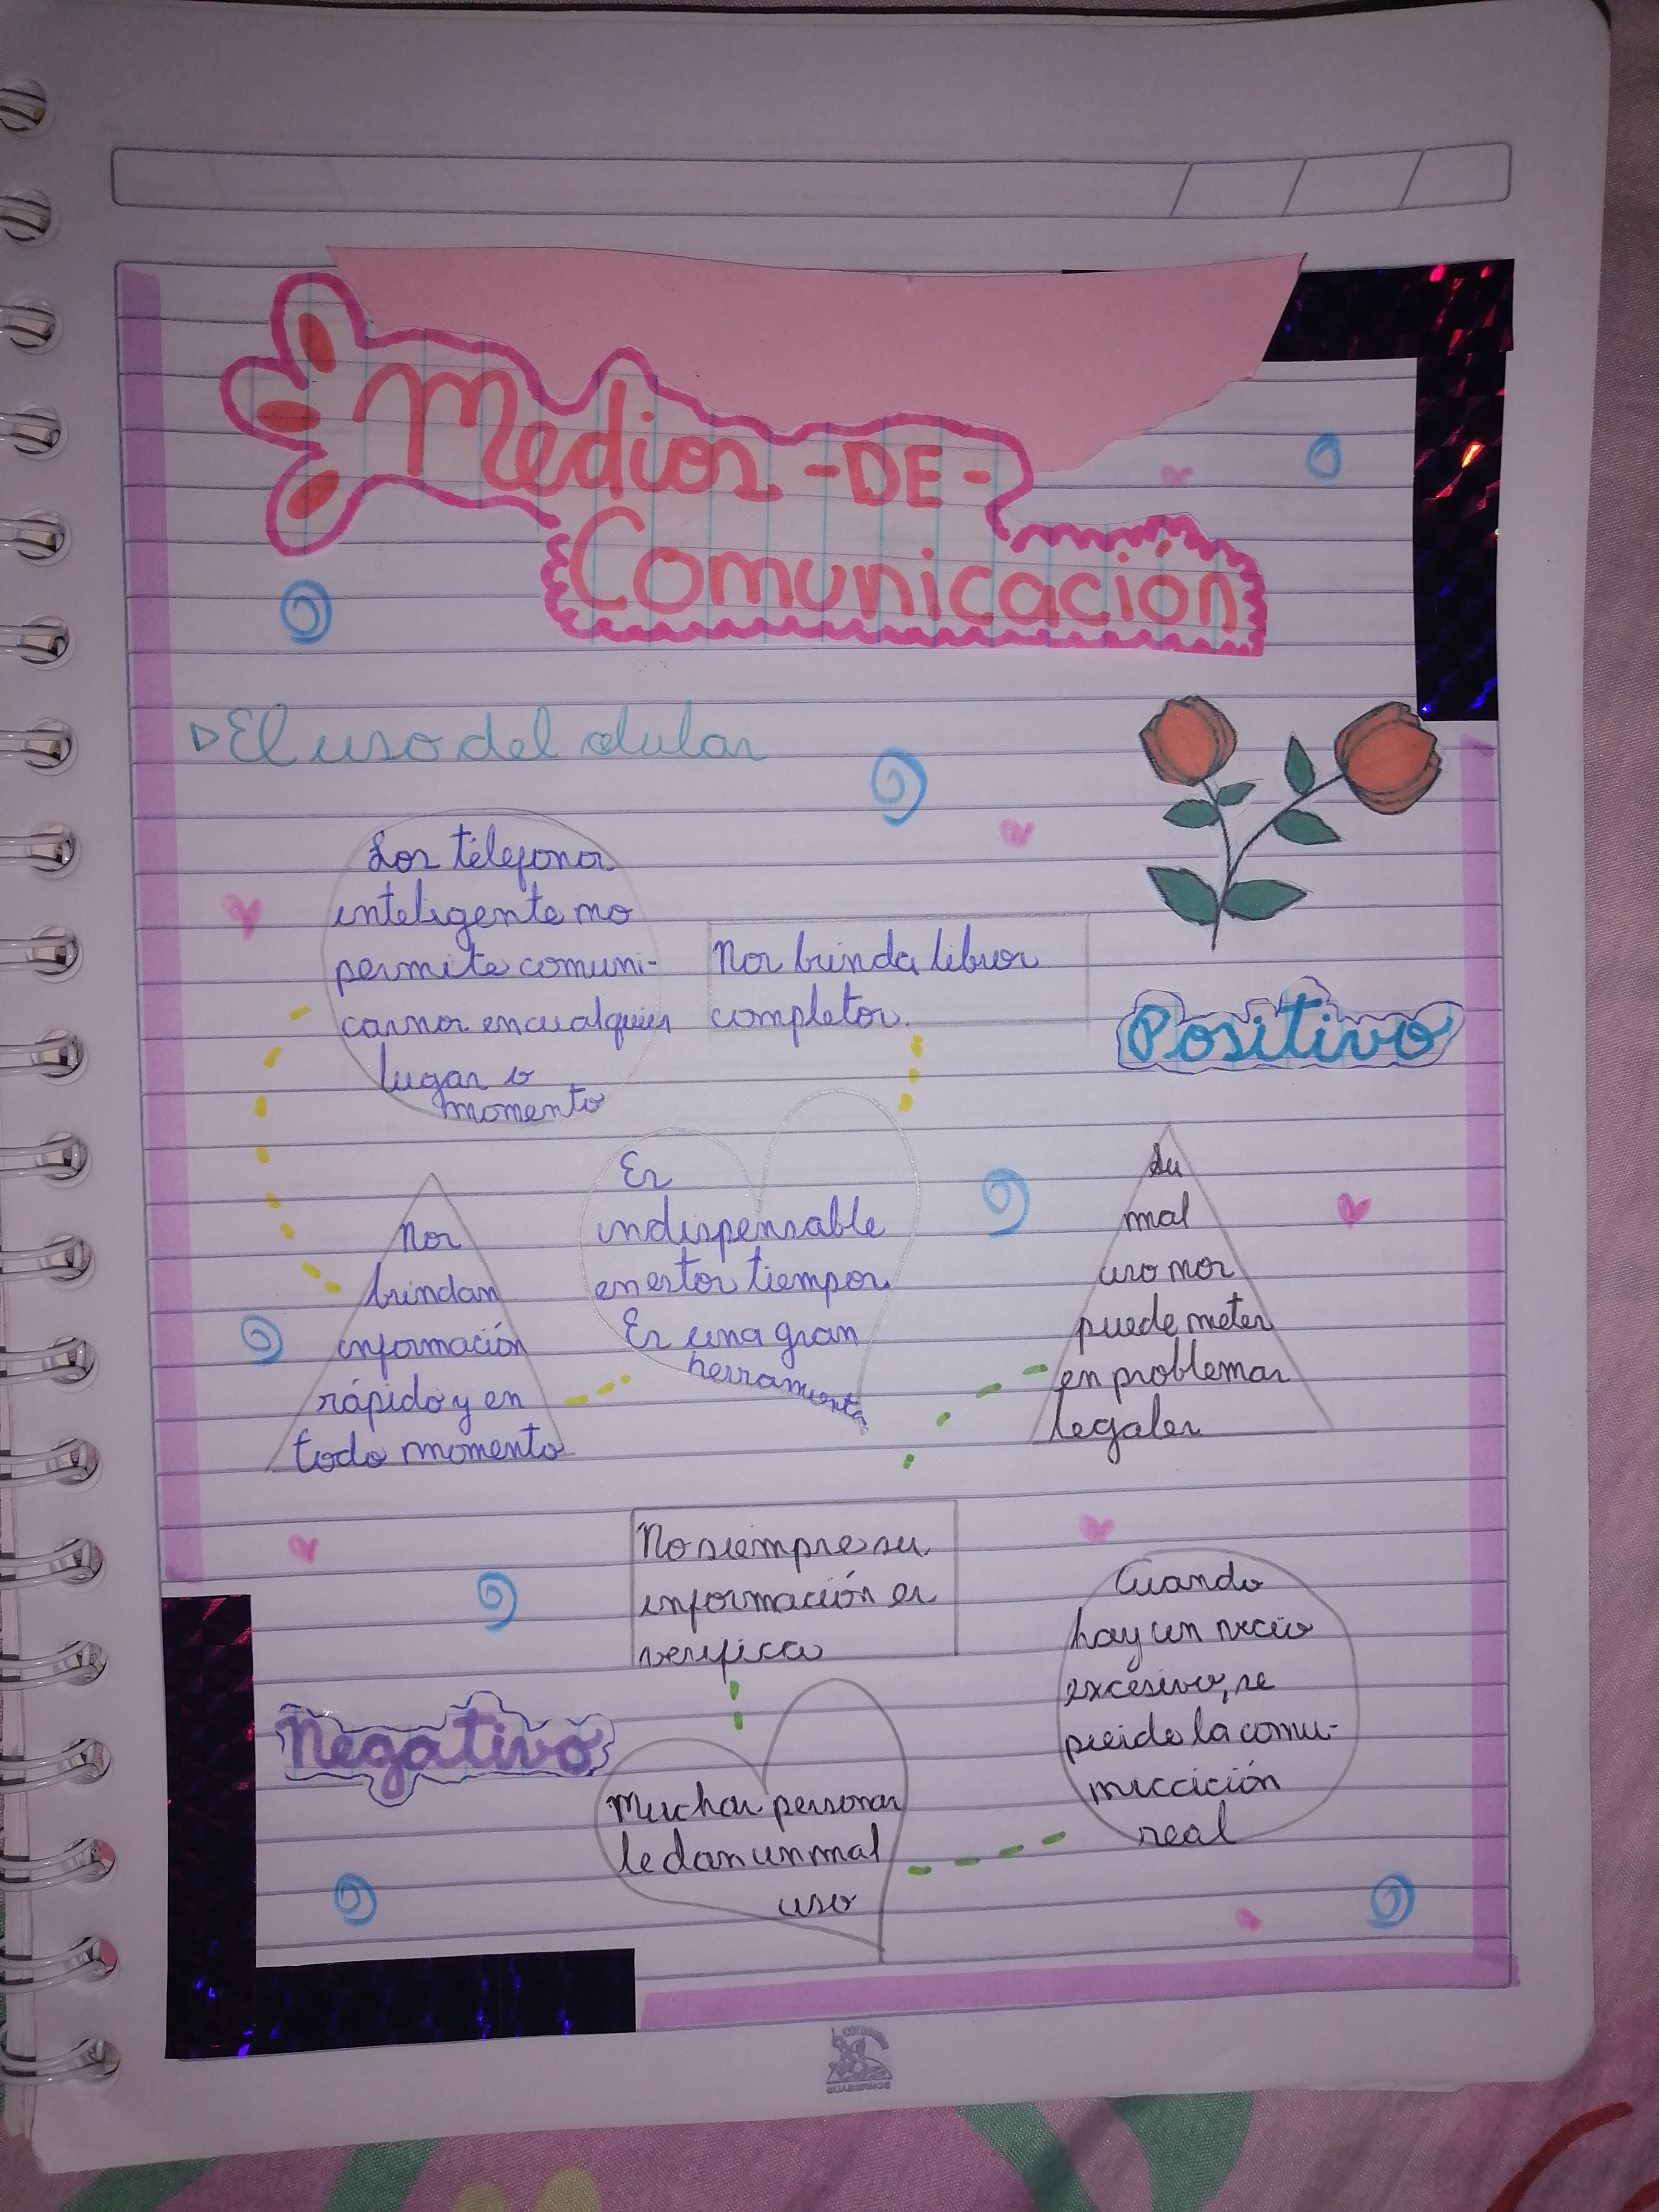 Medios -DE-
Comunicación
El uso del clular
Los télefonos
inteligente nos
permite comuni-
carnos en cualquier
lugar o
momento
Nos brinda libros
completos.
Positivo
Nos
brindan
información
rápido y en
todo momento
Es
indispensable
en estos tiempos.
Es una gran
herramienta.
Su
mal
uso nos
puede meter
en problemas
legales.
No siempre su
información es
verifica
Negativo
Muchas personas
le dan un mal
uso
Cuando
hay un
excesivo, se
la comu-
real